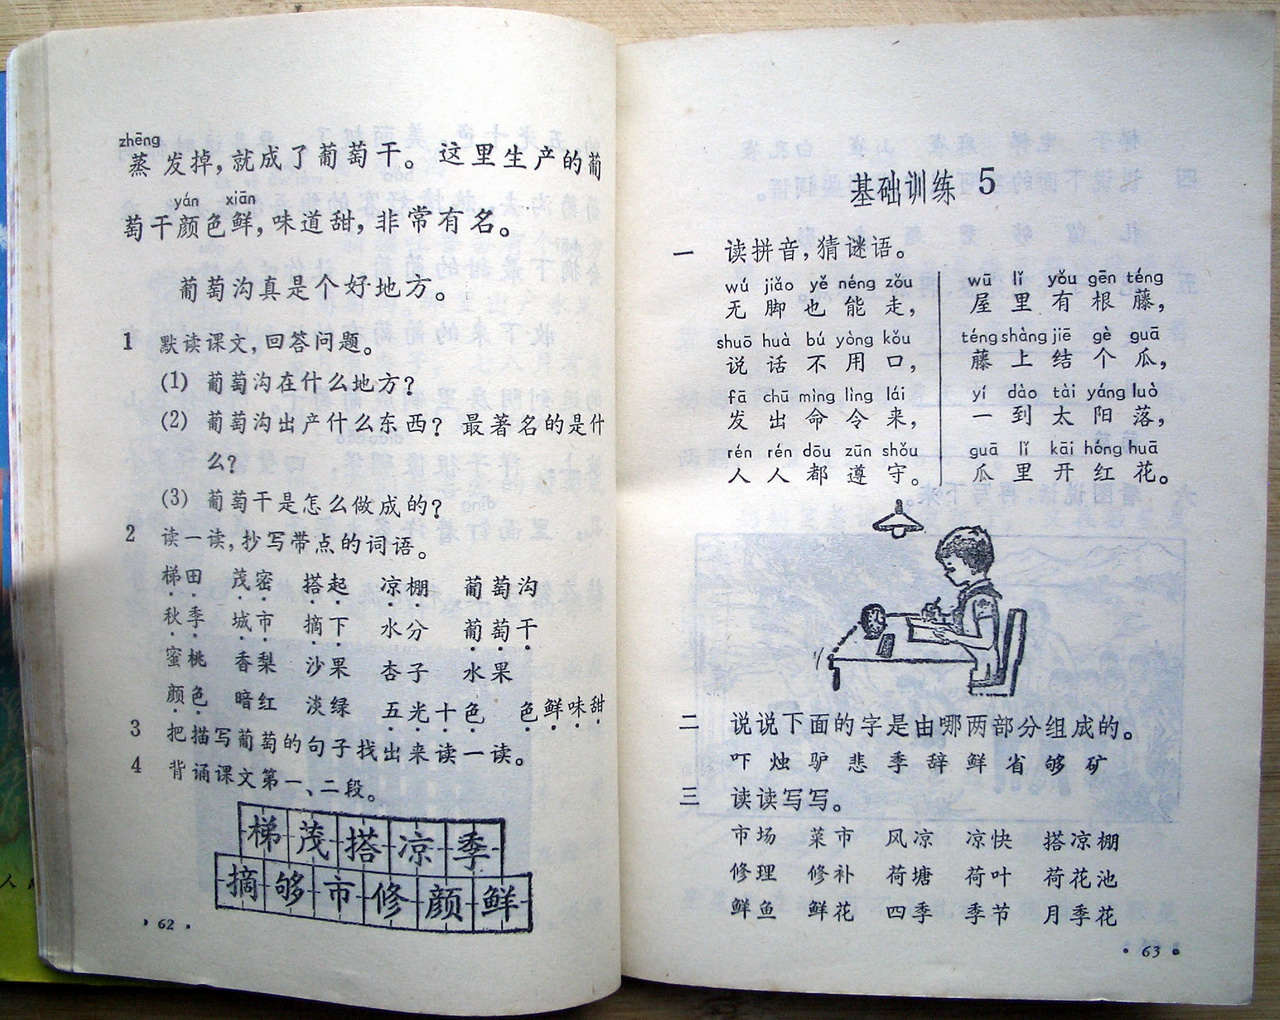 zhēng
蒸发掉，就成了葡萄干。这里生产的葡
yán xiān
萄干颜色鲜，味道甜，非常有名。
葡萄沟真是个好地方。
1 默读课文，回答问题。
(1) 葡萄沟在什么地方？
(2) 葡萄沟出产什么东西？最著名的是什
么？
(3) 葡萄干是怎么做成的？
2 读一读，抄写带点的词语。
梯田 茂密 搭起 凉棚 葡萄沟
秋季 城市 摘下 水分 葡萄干
蜜桃 香梨 沙果 杏子 水果
颜色 暗红 淡绿 五光十色 色鲜味甜
3 把描写葡萄的句子找出来读一读。
4 背诵课文第一、二段。
梯茂搭凉季
摘够市修颜鲜
62
基础训练 5
一 读拼音，猜谜语。
wú jiǎo yě néng zǒu
无脚也能走，
shuō huà bú yòng kǒu
说话不用口，
fā chū mìng lìng lái
发出命令来，
rén rén dōu zūn shǒu
人人都遵守。
wū lǐ yǒu gēn téng
屋里有根藤，
téng shàng jiē gè guā
藤上结个瓜，
yí dào tài yáng luò
一到太阳落，
guā lǐ kāi hóng huā
瓜里开红花。
二 说说下面的字是由哪两部分组成的。
吓 烛 驴 悲 季 辞 鲜 省 够 矿
三 读读写写。
市场 菜市 风凉 凉快 搭凉棚
修理 修补 荷塘 荷叶 荷花池
鲜鱼 鲜花 四季 季节 月季花
63